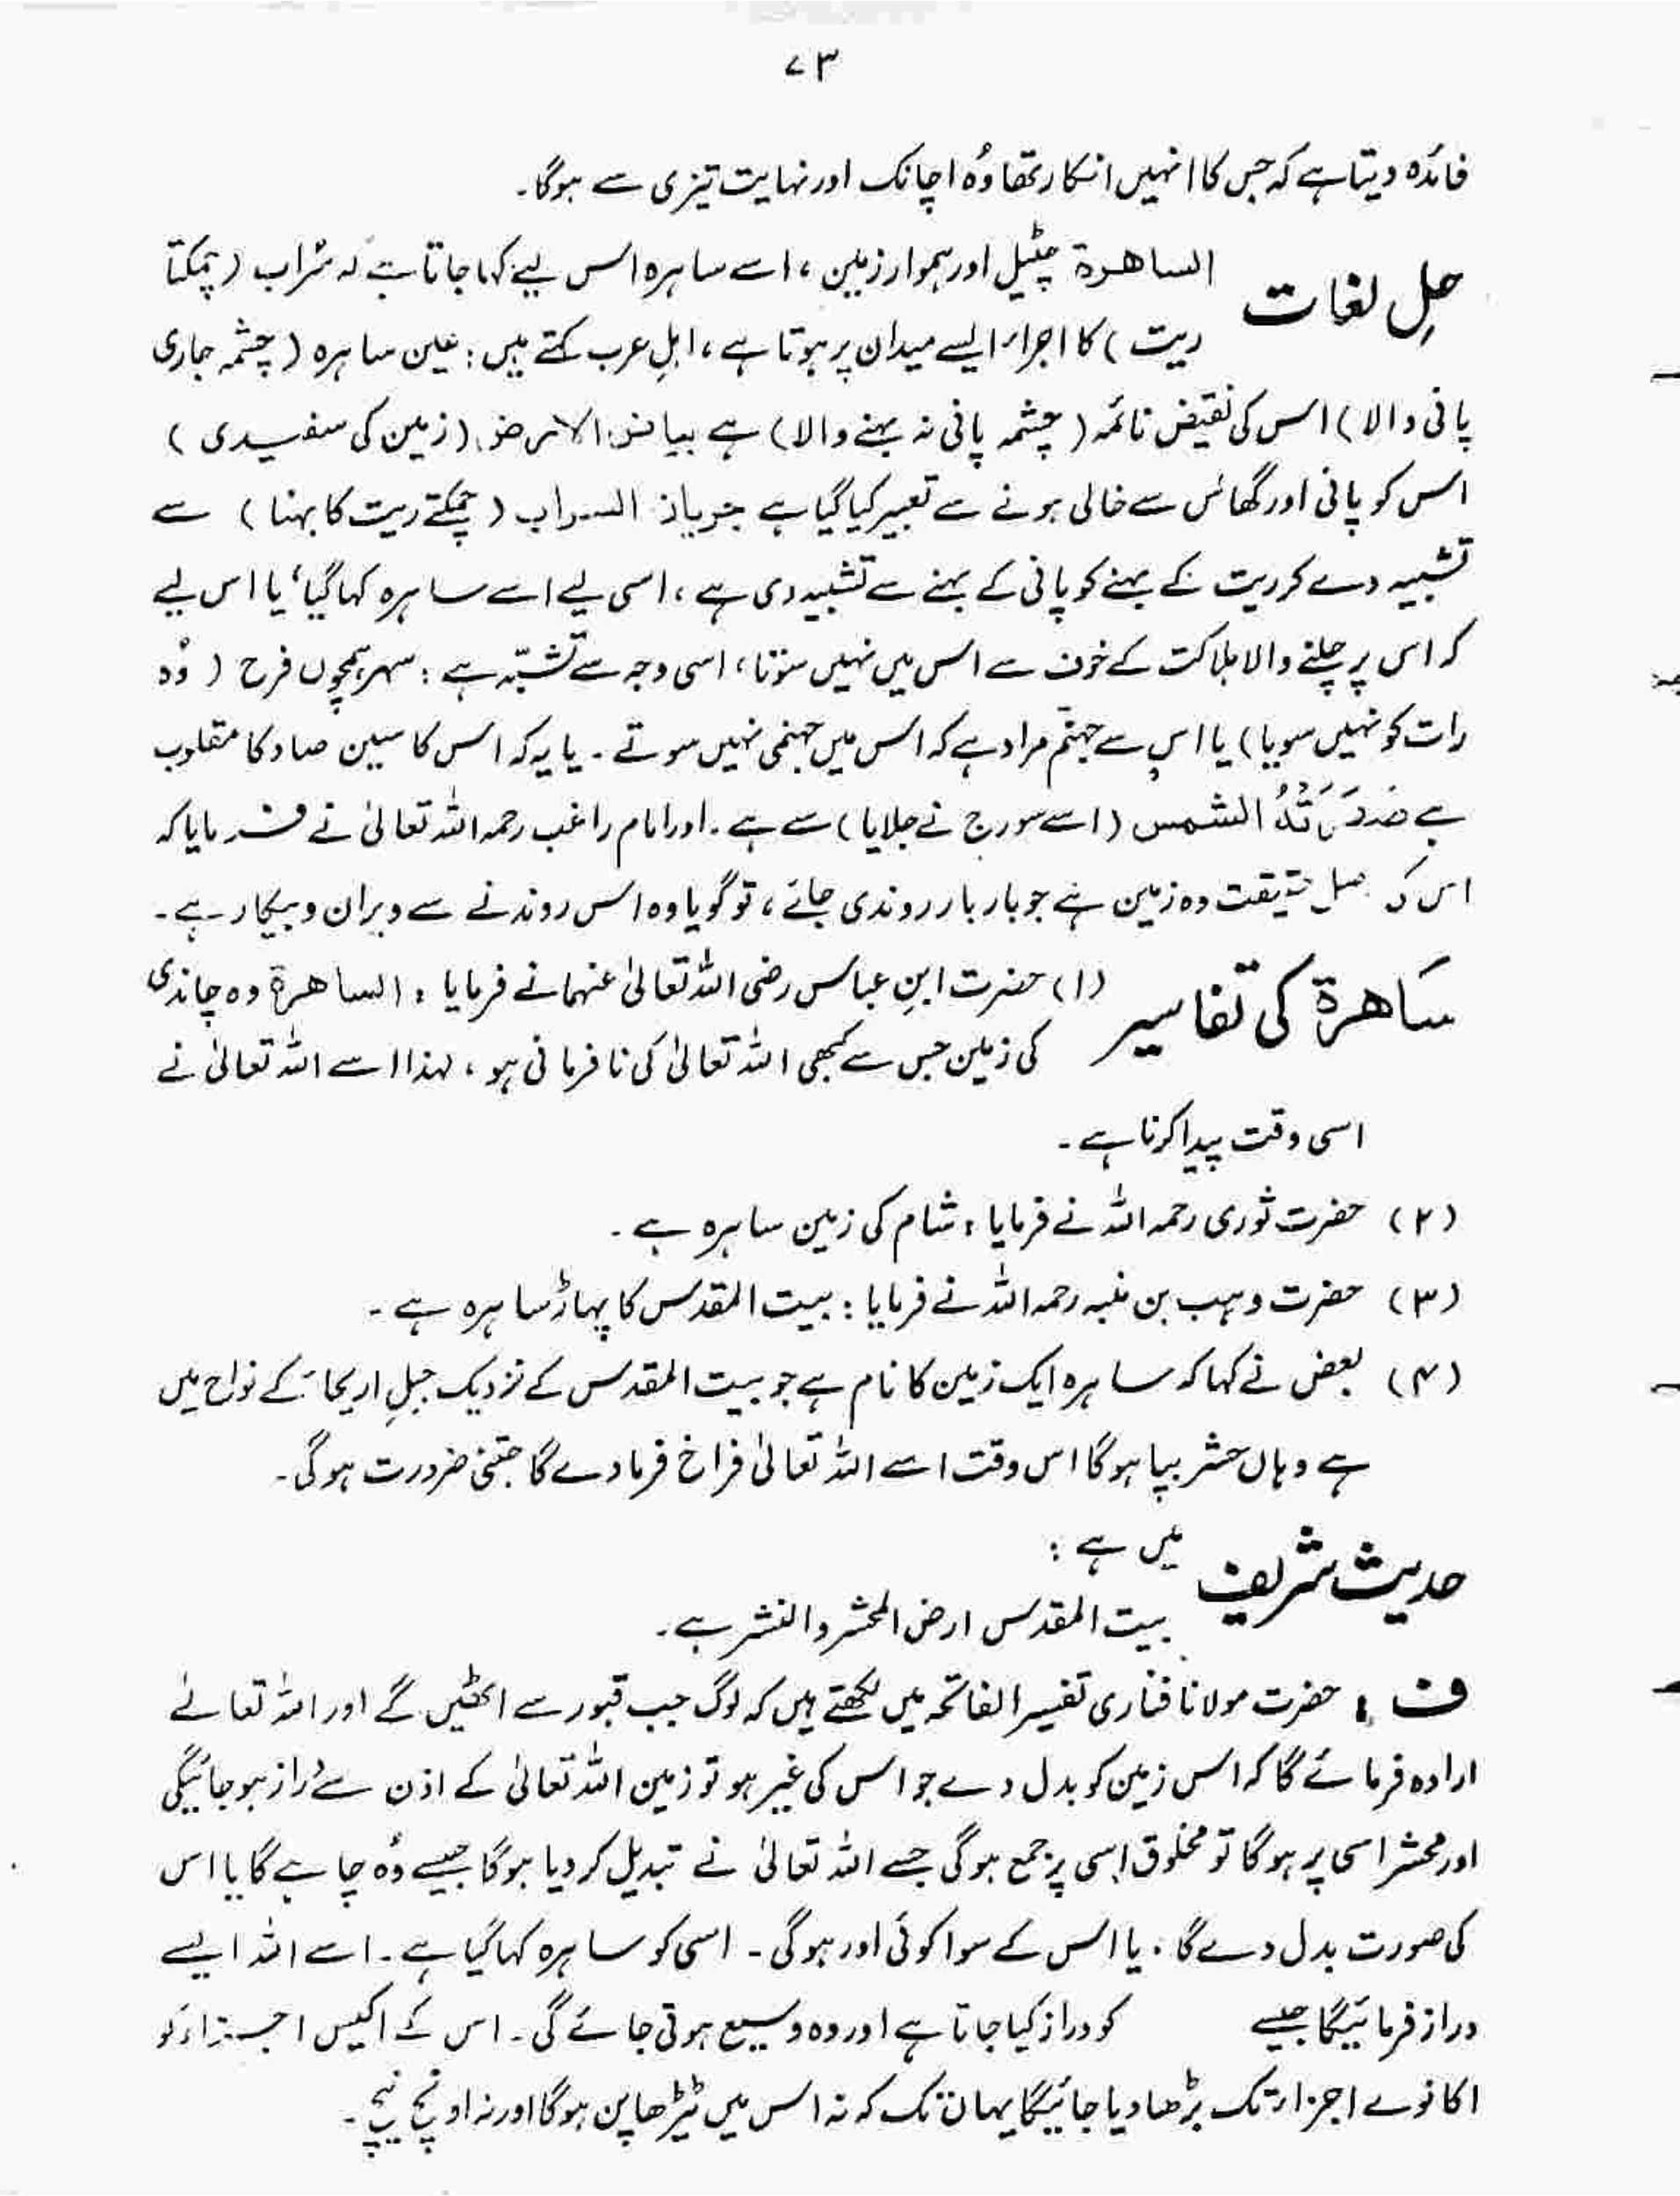 ۷۳
فائدہ دیتا ہے کہ جس کا انہیں انکار تھا وُہ اچانک اور نہایت تیزی سے ہوگا۔
حلِ لغات
الساھرۃ چٹیل اور ہموار زمین ، اسے ساہرہ اس لیے کہا جاتا ہے کہ سراب ( چمکتا
ریت ) کا اجراء ایسے میدان پر ہوتا ہے ، اہلِ عرب کہتے ہیں : عین ساہرہ ( چشمہ جاری
پانی والا ) اس کی نقیض نائمہ ( چشمہ پانی نہ بہنے والا ) ہے بیاض الارض ( زمین کی سفیدی )
اس کو پانی اور گھاس سے خالی ہونے سے تعبیر کیا گیا ہے جریان السراب ( چمکتے ریت کا بہنا ) سے
تشبیہ دے کر ریت کے بہنے کو پانی کے بہنے سے تشبیہ دی ہے ، اسی لیے اسے ساہرہ کہا گیا ، یا اس لیے
کہ اس پر چلنے والا ہلاکت کے خوف سے اس میں نہیں سوتا ، اسی وجہ سے تشبّہ ہے : سہر ہمچوں فرح ( وُہ
رات کو نہیں سویا ) یا اس سے جہنّم مراد ہے کہ اس میں جہنمی نہیں سوتے ۔ یا یہ کہ اس کا سین صاد کا مقلوب
ہے الشمس ( اسے سورج نے جلایا ) سے ہے ۔ اور امام راغب رحمہ اللہ تعالیٰ نے فرمایا کہ
اس کی حقیقت وہ زمین ہے جو بار بار روندی جائے ، تو گویا وہ اس روندنے سے ویران و بیکار ہے ۔
ساھرۃ کی تفاسیر
(۱) حضرت ابنِ عباس رضی اللہ تعالیٰ عنہما نے فرمایا : الساھرۃ وہ چاندی
کی زمین جس سے کبھی اللہ تعالیٰ کی نافرمانی ہو ، لہذا اسے اللہ تعالیٰ نے
اسی وقت پیدا کرنا ہے ۔
(۲) حضرت ثوری رحمہ اللہ نے فرمایا : شام کی زمین ساہرہ ہے ۔
(۳) حضرت وہب بن منبہ رحمہ اللہ نے فرمایا : بیت المقدس کا پہاڑ ساہرہ ہے ۔
(۴) بعض نے کہا کہ ساہرہ ایک زمین کا نام ہے جو بیت المقدس کے نزدیک جبلِ اریحاء کے نواح میں
ہے وہاں حشر بپا ہوگا اس وقت اسے اللہ تعالیٰ فراخ فرما دے گا جتنی ضرورت ہوگی ۔
حدیث شریف
میں ہے :
بیت المقدس ارض المحشر والنشر ہے ۔
ف : حضرت مولانا فناری تفسیر الفاتحہ میں لکھتے ہیں کہ لوگ جب قبور سے اٹھیں گے اور اللہ تعالےٰ
ارادہ فرمائے گا کہ اس زمین کو بدل دے جو اس کی غیر ہو تو زمین اللہ تعالیٰ کے اذن سے دراز ہو جائیگی
اور محشر اسی پر ہوگا تو مخلوق اسی پر جمع ہوگی جسے اللہ تعالیٰ نے تبدیل کر دیا ہوگا جیسے وُہ چاہے گا یا اس
کی صورت بدل دے گا ، یا اس کے سوا کوئی اور ہوگی ۔ اسی کو ساہرہ کہا گیا ہے ۔ اسے اللہ ایسے
دراز فرمائیگا جیسے کو دراز کیا جاتا ہے اور وہ وسیع ہوتی جائے گی ۔ اس کے اکیس اجزاء کو
اکانوے اجزاء تک بڑھا دیا جائیگا یہاں تک کہ نہ اس میں ٹیڑھا پن ہوگا اور نہ اونچ نیچ ۔